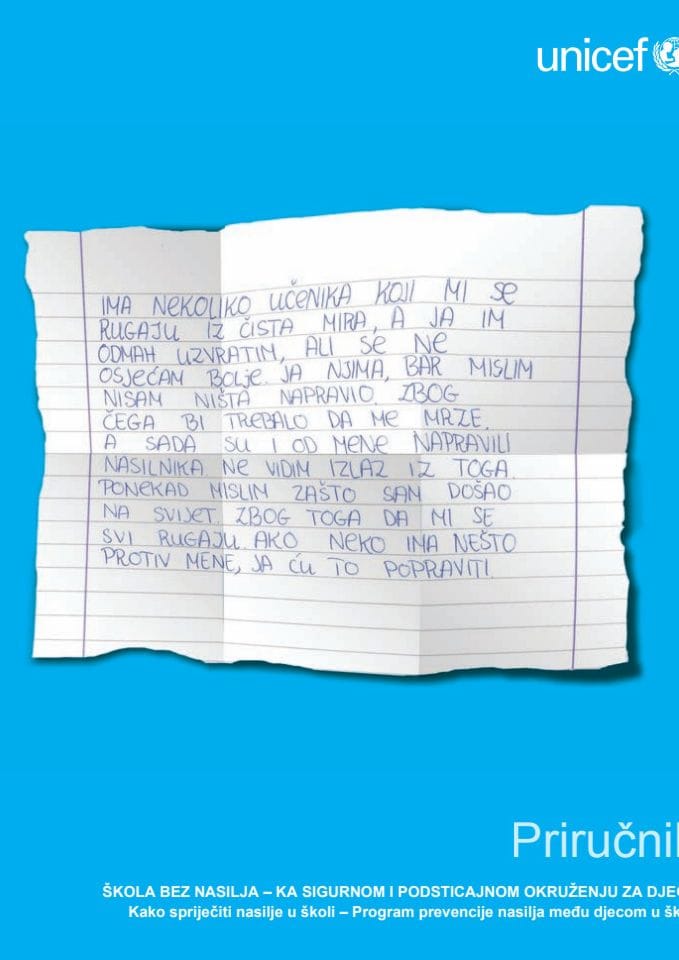 unicef
IMA NEKOLIKO UČENIKA KOJI MI SE
RUGAJU IZ ČISTA MIRA, A JA IM
ODMAH UZVRATIM, ALI SE NE
OSJEĆAM BOLJE. JA NJIMA, BAR MISLIM
NISAM NIŠTA NAPRAVIO. ZBOG
ČEGA BI TREBALO DA ME MRZE.
A SADA SU I OD MENE NAPRAVILI
NASILNIKA NE VIDIM IZLAZ IZ TOGA.
PONEKAD MISLIM ZAŠTO SAM DOŠAO
NA SVIJET. ZBOG TOGA DA MI SE
SVI RUGAJU. AKO NEKO IMA NEŠTO
PROTIV MENE, JA ĆU TO POPRAVITI.
Priručni
ŠKOLA BEZ NASILJA – KA SIGURNOM I PODSTICAJNOM OKRUŽENJU ZA DJEC
Kako spriječiti nasilje u školi – Program prevencije nasilja među djecom u šk